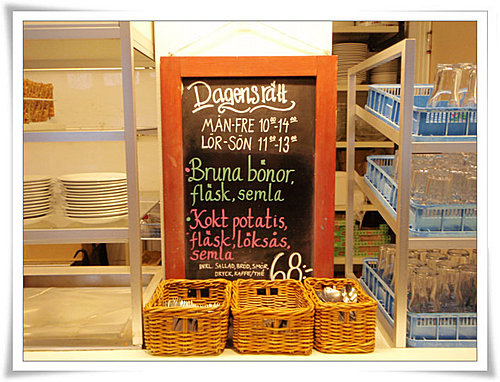 Dagens rätt
MÅN-FRE 10⁰⁰-14⁰⁰
LÖR-SÖN 11⁰⁰-13⁰⁰
• Bruna bönor,
fläsk, semla
• Kokt potatis,
fläsk, löksås,
semla
INKL. SALLAD, BRÖD, SMÖR,
DRYCK, KAFFE/THÉ
68:-